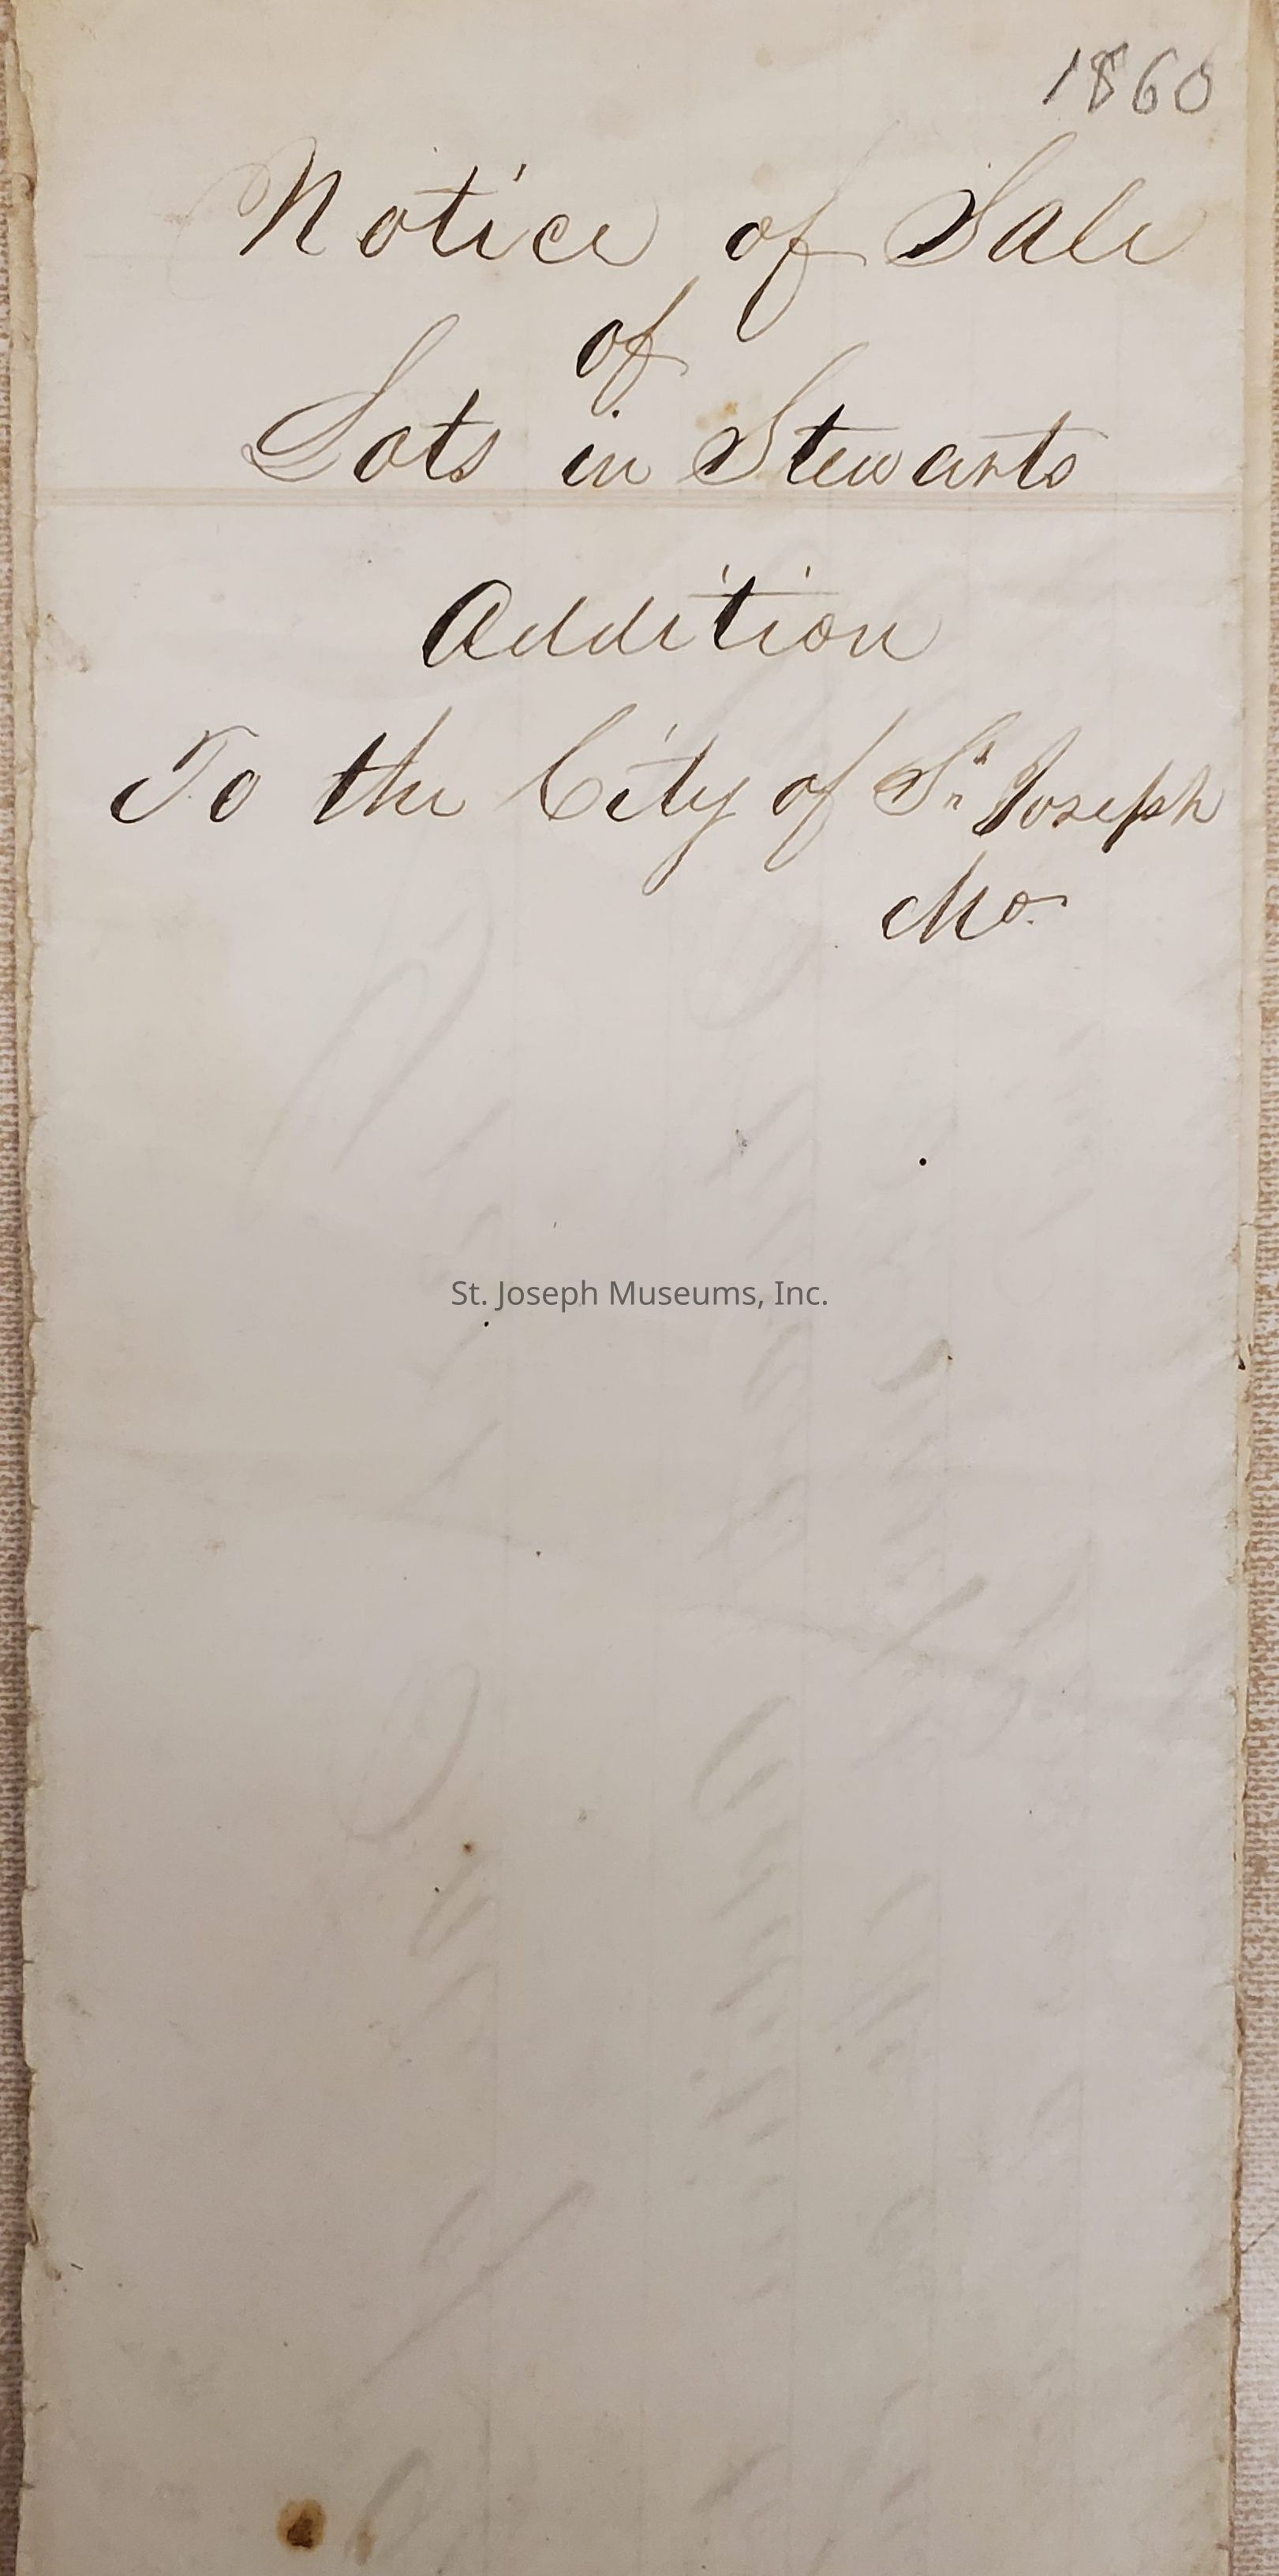 1860
Notice of Sale
of
Lots in Stewarts
Addition
To the City of St. Joseph
Mo.
St. Joseph Museums, Inc.